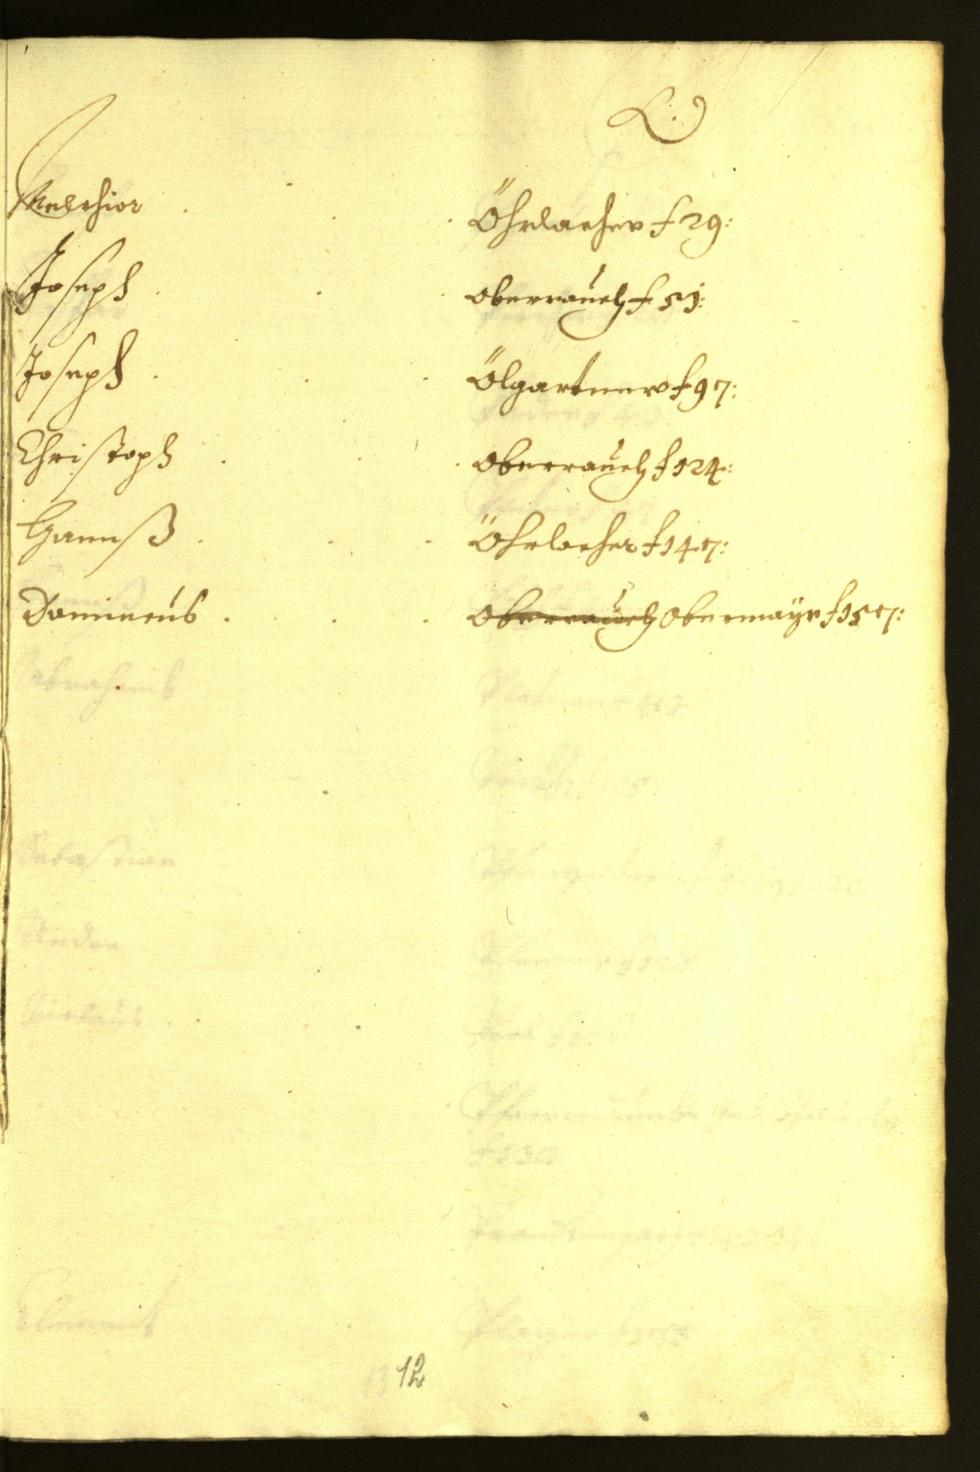 O:
Melchior . . . Öhrlacher f 29:
Joseph . . . Oberrauch f 51:
Joseph . . . Ölgartner f 97:
Christoph . . . Oberrauch f 124:
Hannß . . . Öhrlacher f 147:
Dominicus . . . Oberrauch Obermayr f 157:
12